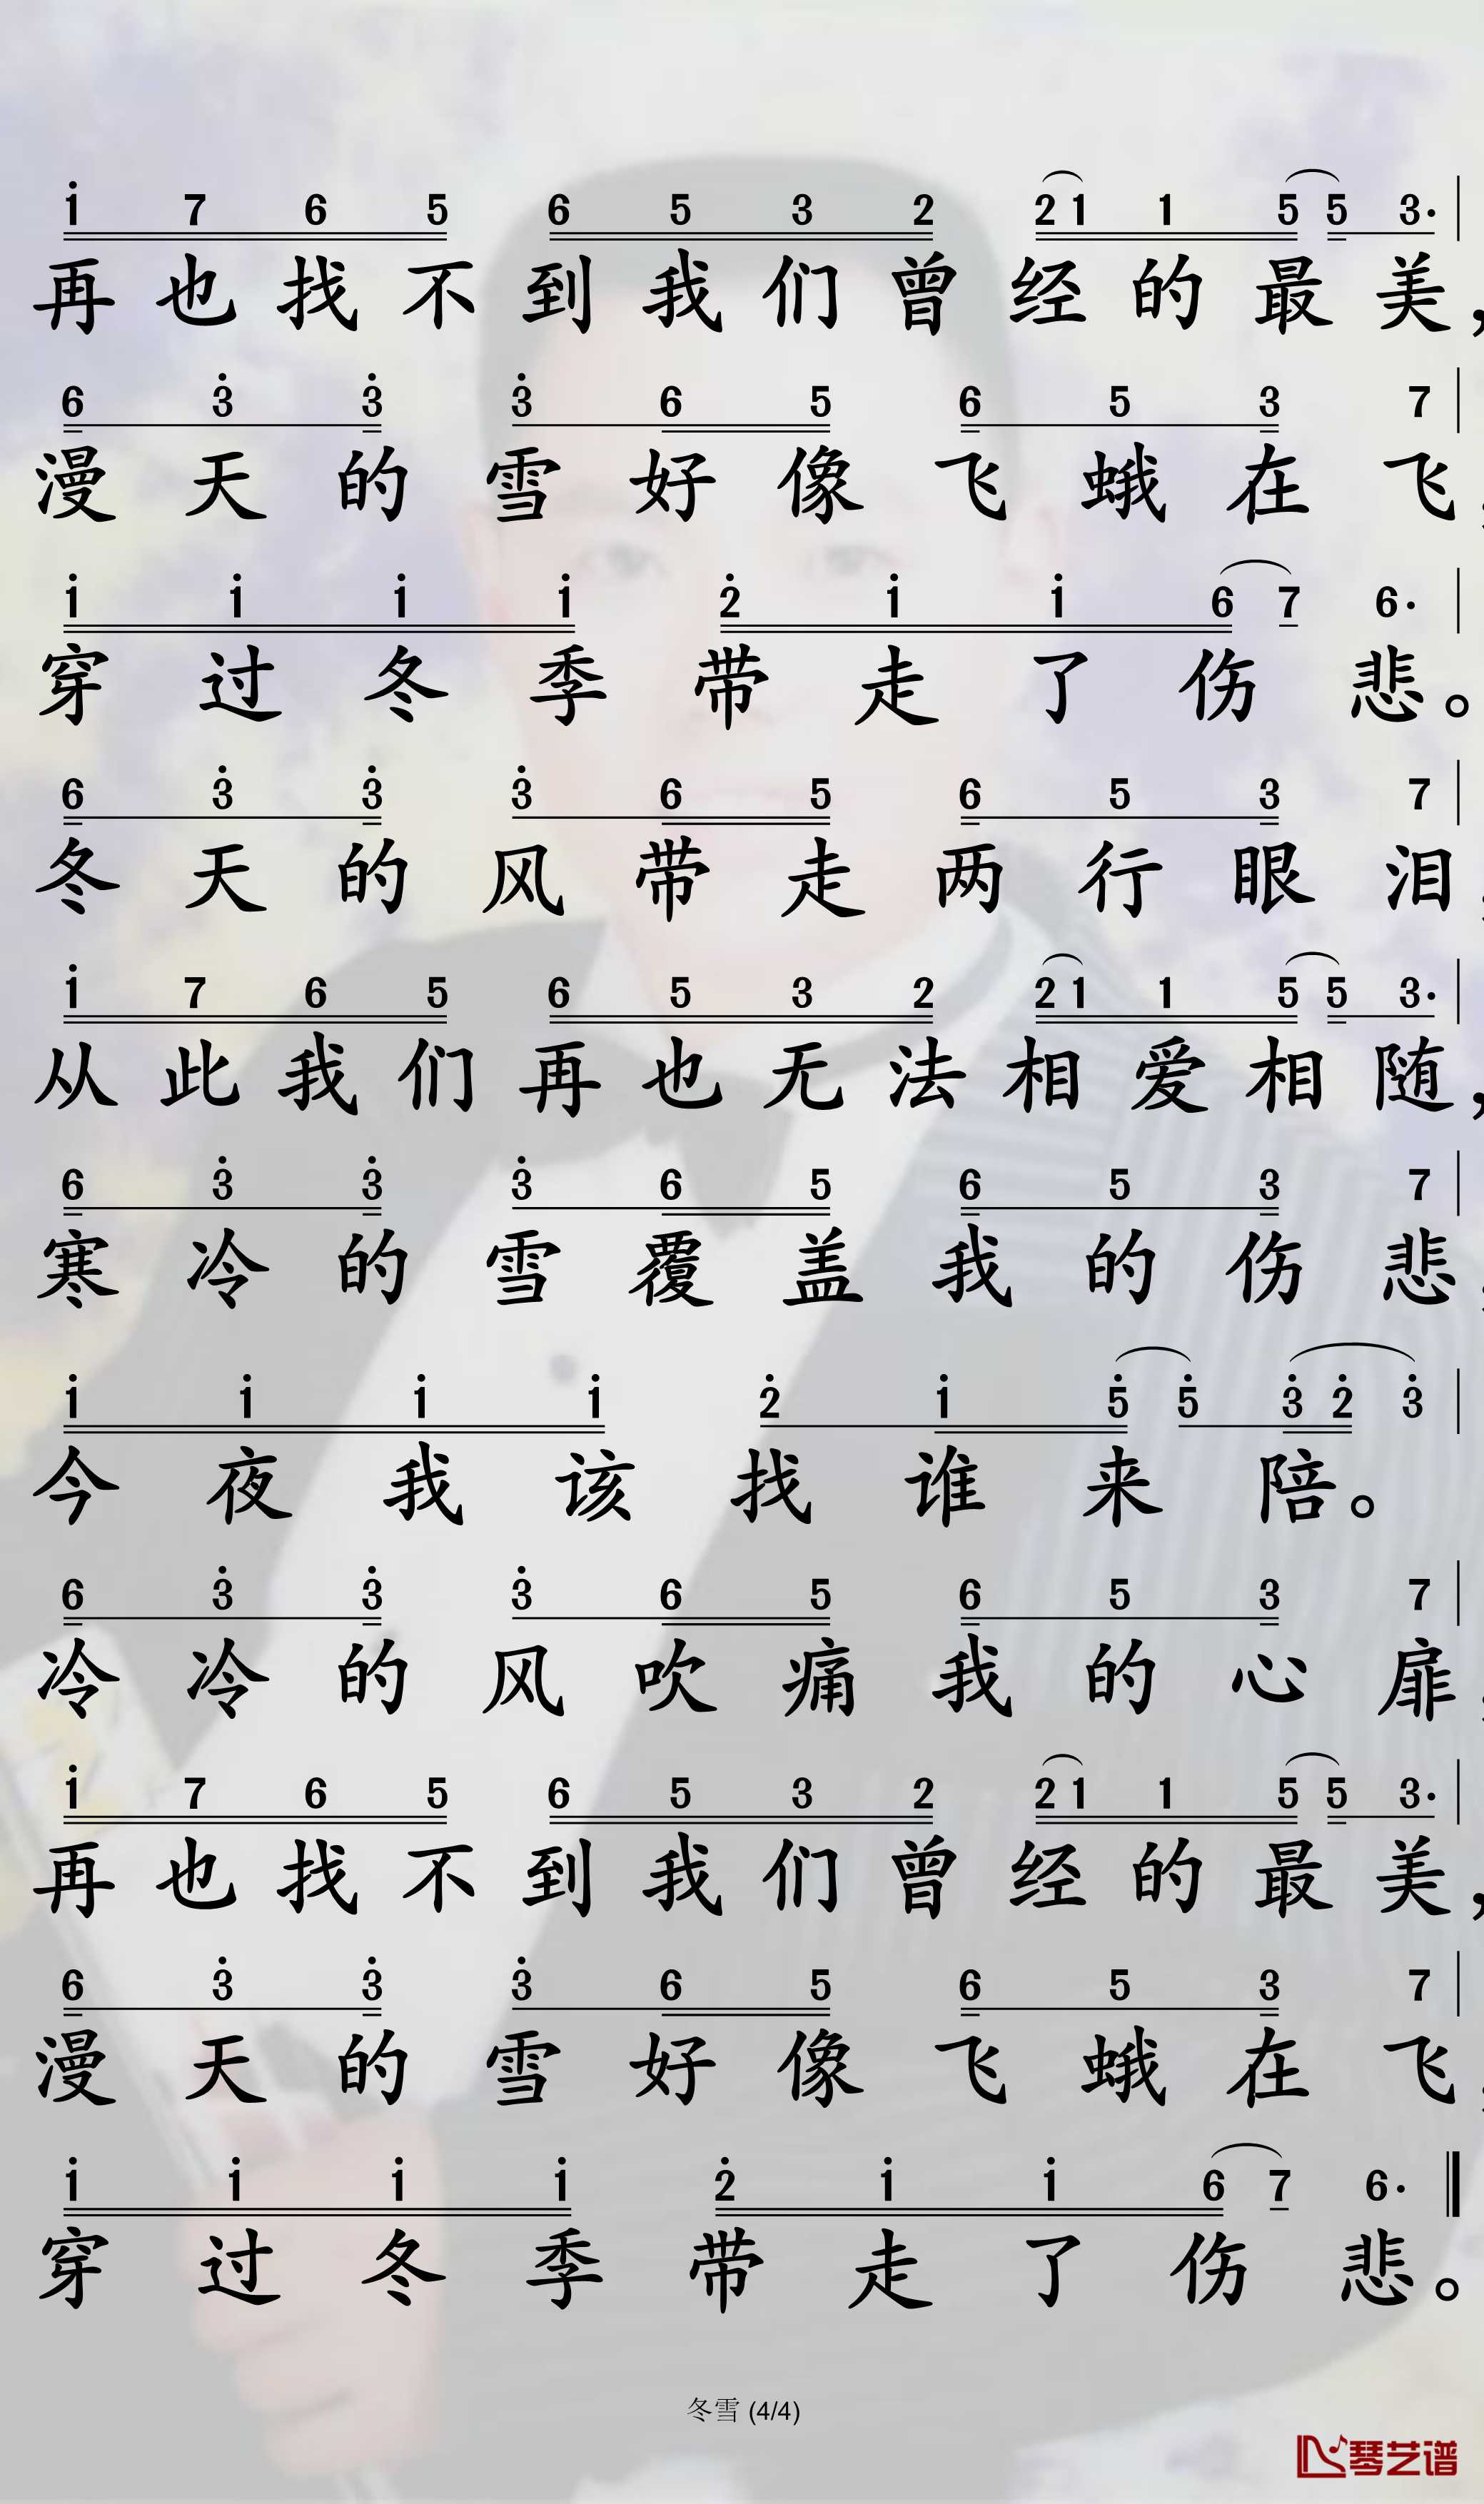 i 7 6 5 6 5 3 2 2 1 1 5 5 3.
再也找不到我们曾经的最美,
6 3̇ 3̇ 3̇ 6 5 6 5 3 7
漫天的雪好像飞蛾在飞,
i i i i 2̇ i i 6 7 6.
穿过冬季带走了伤悲。
6 3̇ 3̇ 3̇ 6 5 6 5 3 7
冬天的风带走两行眼泪,
i 7 6 5 6 5 3 2 2 1 1 5 5 3.
从此我们再也无法相爱相随,
6 3̇ 3̇ 3̇ 6 5 6 5 3 7
寒冷的雪覆盖我的伤悲,
i i i i 2̇ i 5̇ 5̇ 3̇ 2̇ 3̇
今夜我该找谁来陪。
6 3̇ 3̇ 3̇ 6 5 6 5 3 7
冷冷的风吹痛我的心扉,
i 7 6 5 6 5 3 2 2 1 1 5 5 3.
再也找不到我们曾经的最美,
6 3̇ 3̇ 3̇ 6 5 6 5 3 7
漫天的雪好像飞蛾在飞,
i i i i 2̇ i i 6 7 6.
穿过冬季带走了伤悲。
冬雪 (4/4)
琴艺谱